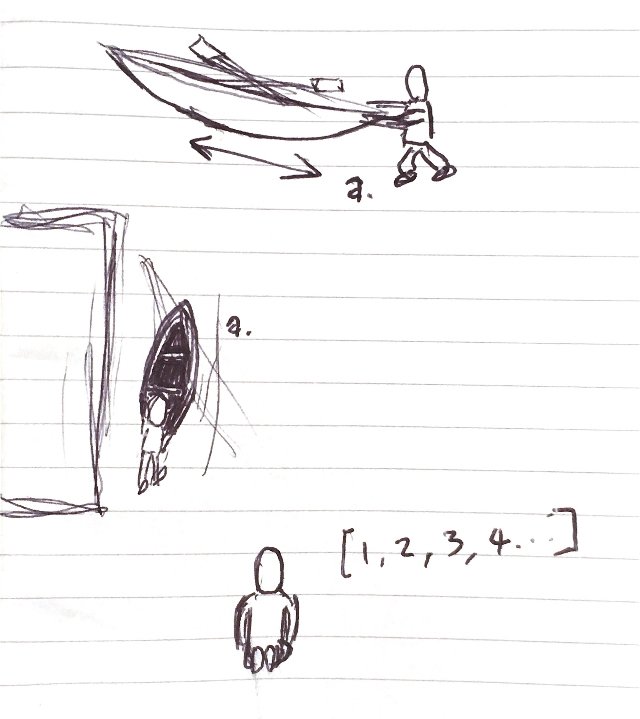 a.
a.
[1, 2, 3, 4...]